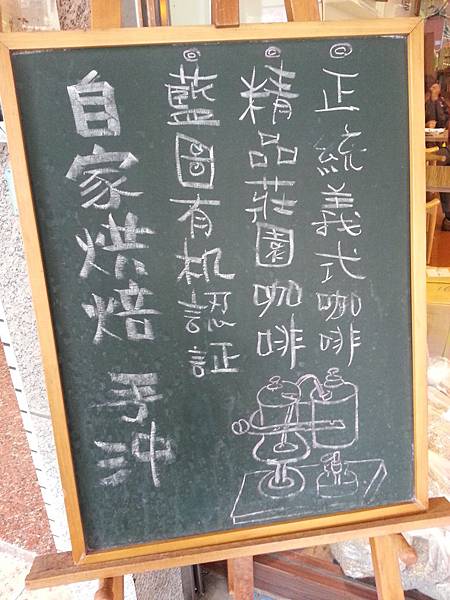 ◎正統義式咖啡
◎精品莊園咖啡
◎藍圖有机認証
自家烘焙 手沖